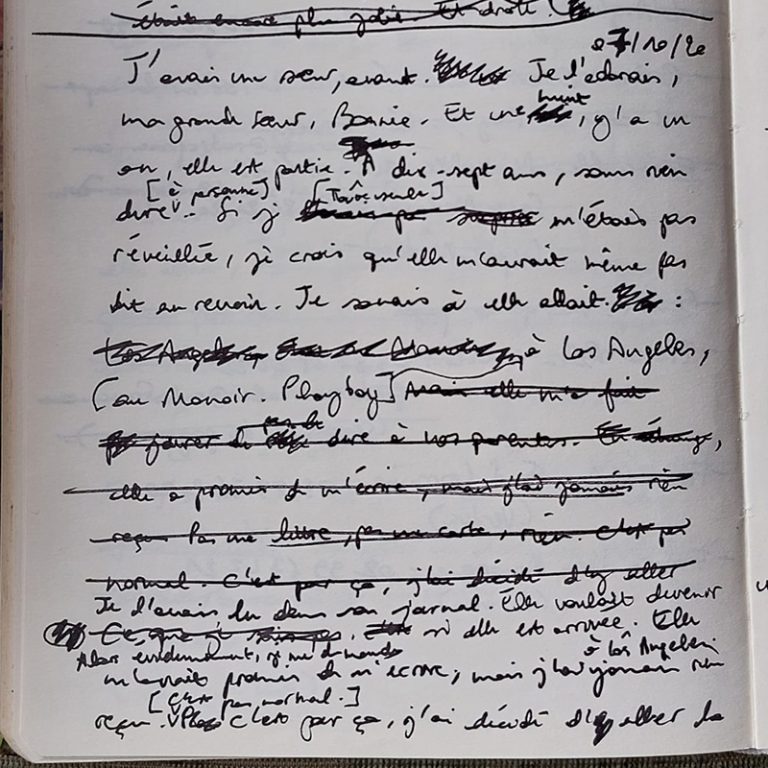 était encore plus jolie. Et droite.
27/10/20
J'avais une sœur, avant. Je l'adorais,
ma grande sœur, Bonnie. Et une nuit, y'a un
an, elle est partie. À dix-sept ans, sans rien
[à personne] [Toute seule]
dire. Si je m'étais pas
réveillée, je crois qu'elle m'aurait même pas
dit au revoir. Je savais où elle allait :
à Los Angeles,
[au Manoir Playboy] Mais elle m'a fait
jurer de rien dire à nos parents. En échange,
elle a promis de m'écrire, mais j'ai jamais rien
reçu. Pas une lettre, pas une carte, rien. C'est pas
normal. C'est pour ça, j'ai décidé d'y aller
Je l'avais lu dans son journal. Elle voulait devenir
si elle est arrivée. Elle
Alors évidemment, je me demande à Los Angeles
m'avait promis de m'écrire, mais j'ai jamais rien
[C'est pas normal.]
reçu. C'est pour ça, j'ai décidé d'y aller